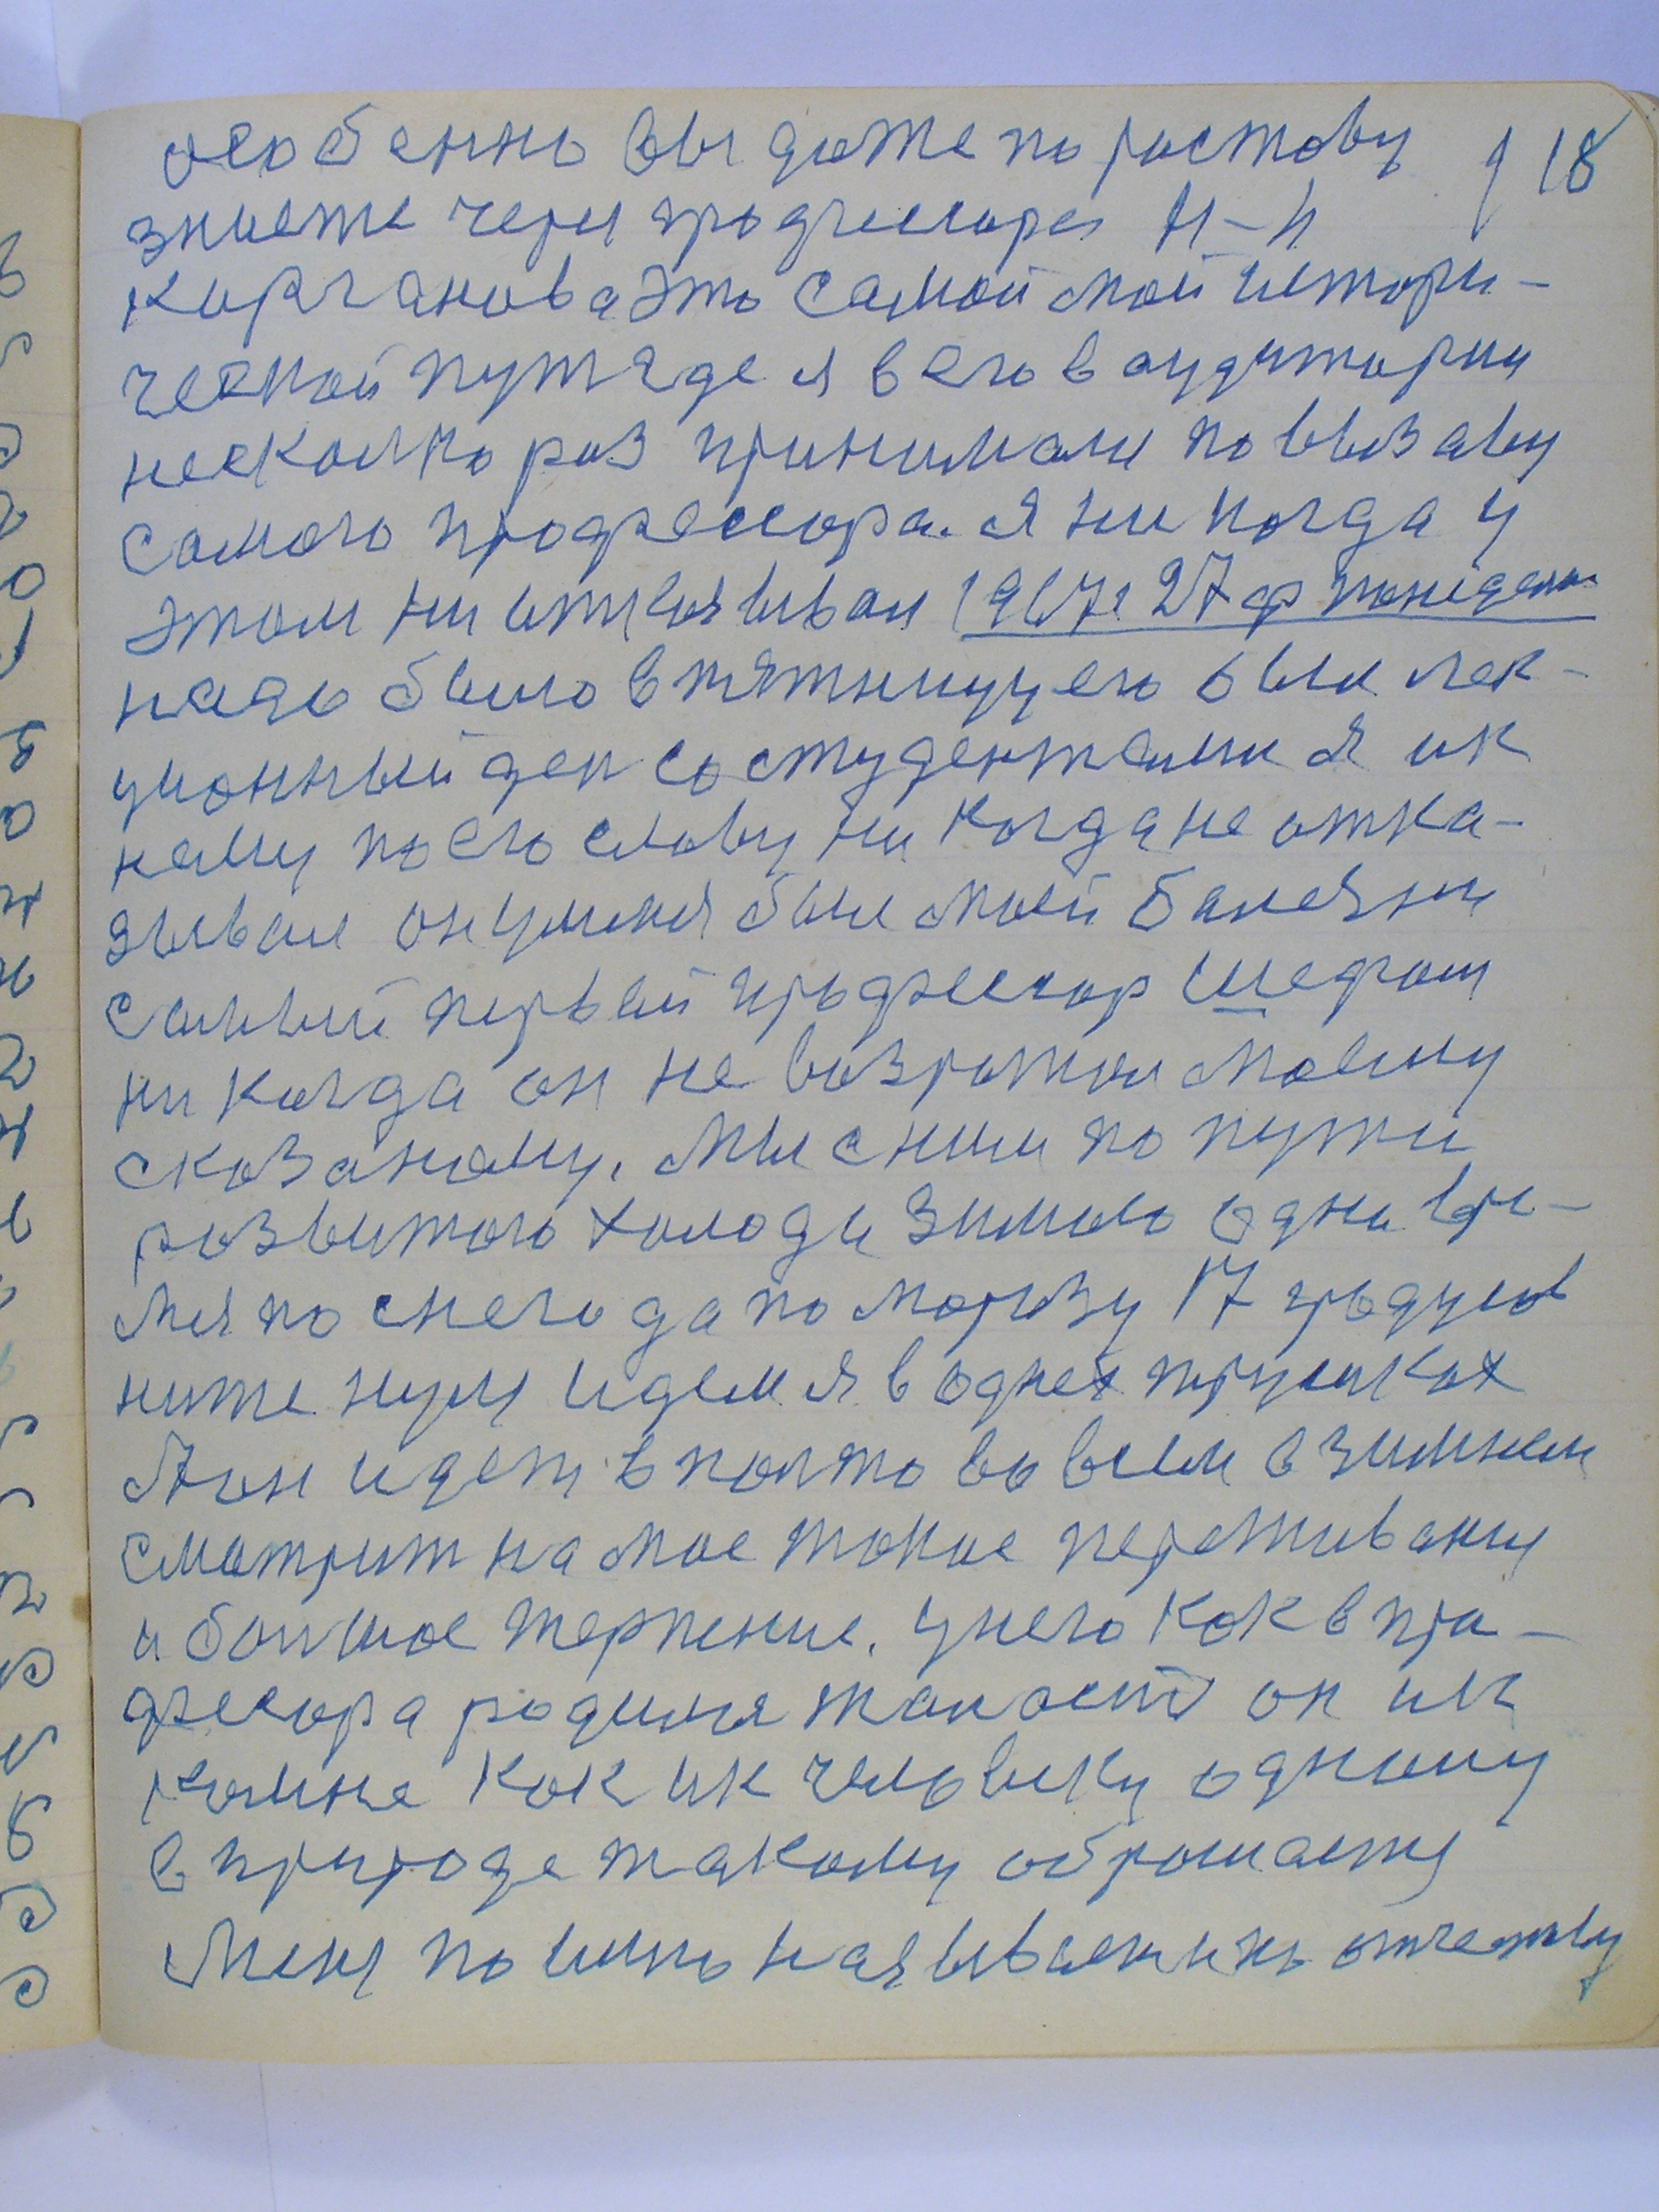 особенно вы даже по ростову 118
знаете через профессора Н-Н
Корганова это самой мой истори-
ческой путь где я в его в аудитории
несколько раз принимали по вызаву
самого профессора. Я ни когда у
этом ни отказывал 1967г 27 ф понидел
надо было в пятницу его был лек-
ционный ден со студентами я ик
нему по его слову ни когда не отка-
зывал он у меня был моей балезни
самый первый професор шефом
ни когда он не возрожал моему
сказаному. Мы с ним по пути
развитого холода зимою одно вре-
мя по снегу да по морозу 17 градусов
ниже нуля идем я в однех трусиках
А он идет в полто во всем в зимнем
смотрит на мое токое переживания
и болшое терпение. У него как в про-
фесора родилося токость он ик
комне как ик человику одному
в природе такому обрашается
Меня по имю называет и по отчеству